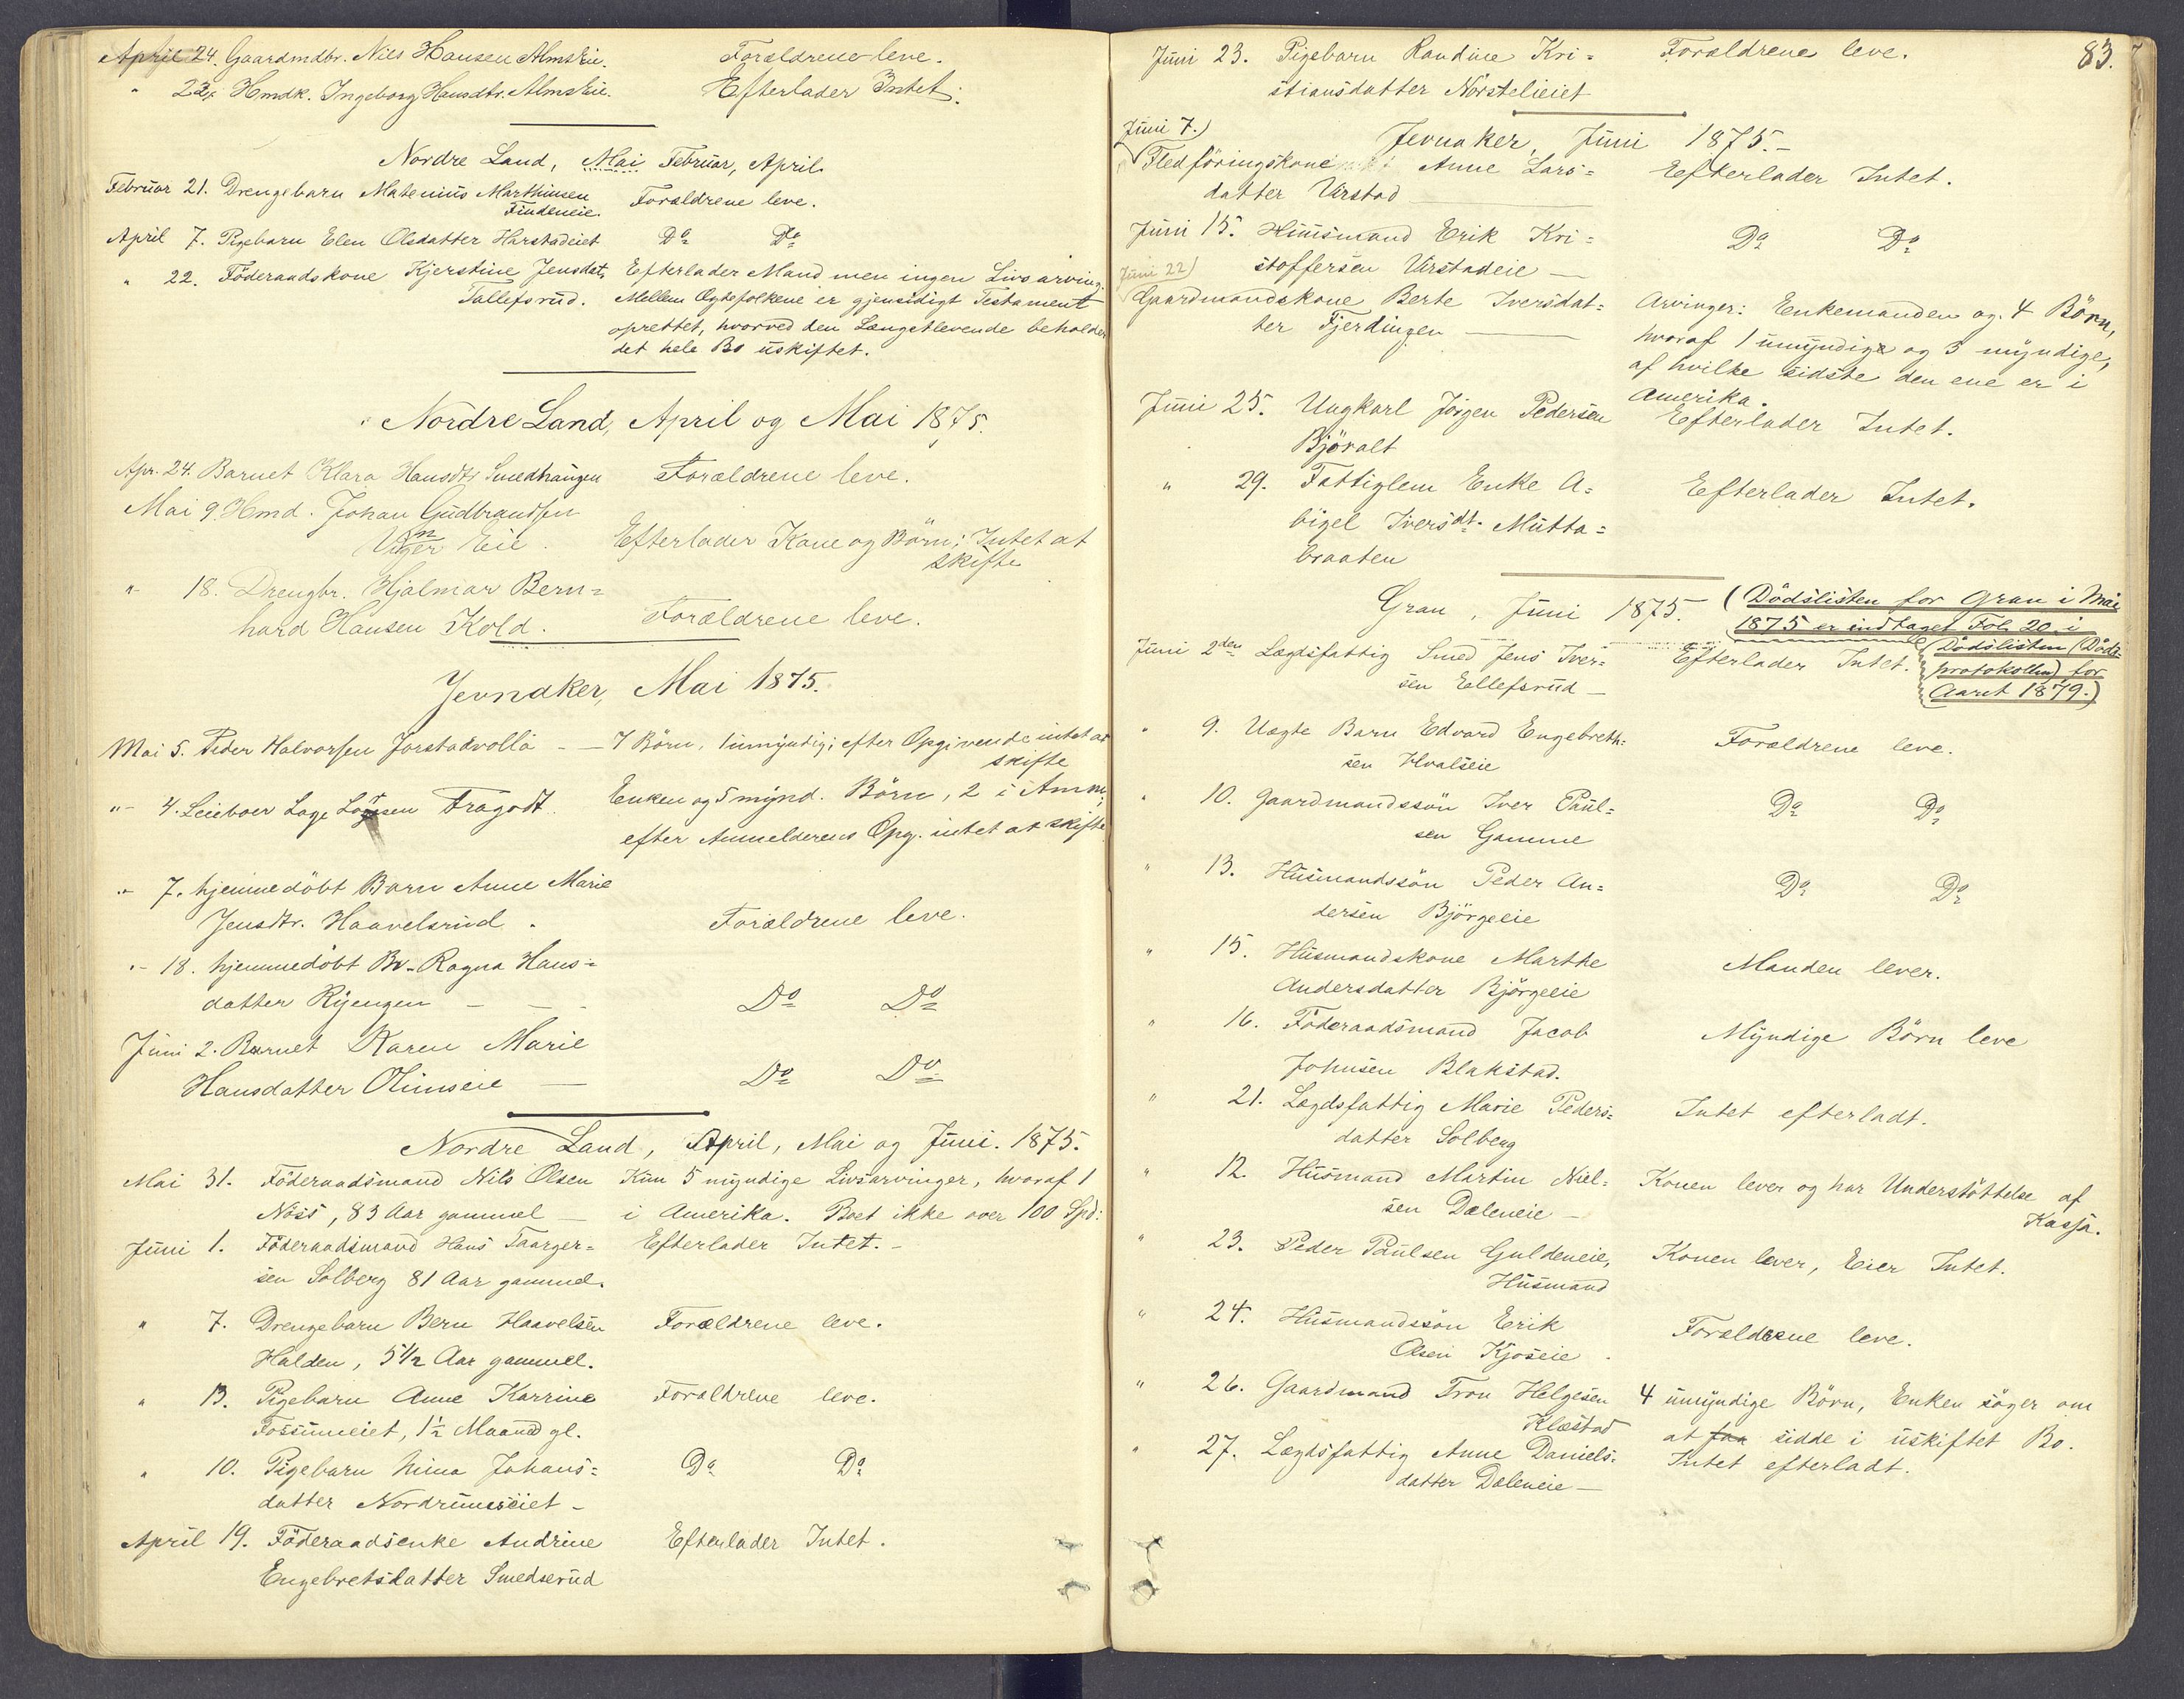 April 24. Gaardmdbr. Nils Hansen Almslie. Forældrene leve.
" 23. Hmdk. Ingeborg Hansdtr. Almslie. Efterlader Intet.
Nordre Land, Mai Februar, April.
Februar 21. Drengebarn Matenius Marthinsen
Findeneie. Forældrene leve.
April 7. Pigebarn Elen Olsdatter Harstadeiet Do Do
" 22. Föderaadskone Kjerstine Jensdat. Efterlader Mand men ingen Livsarving.
Tollefsrud. Mellem Ægtefolkene er gjensidigt Testament
oprettet, hvorved den Længstlevende beholder
det hele Bo uskiftet.
Nordre Land, April og Mai 1875.
Apr. 24. Barnet Klara Hansdtr Smedhaugen Forældrene leve.
Mai 9 Hmd. Johan Gudbrandsen
Eie. Efterlader Kone og Börn; Intet at
skifte
"- 18. Drengbr. Hjalmar Bern=
hard Hansen Kold. Forældrene leve.
Jevnaker, Mai 1875.
Mai 5. Peder Halvorsen Jorstadvolla - - 7 Börn, 1 umyndig; efter Opgivende intet at
skifte
"- 4. Leieboer Lage Larsen Fragodt. Enken og 5 mynd. Börn, 2 i Am.
efter Anmelderens Opg. intet at skifte
"- 7. hjemmedöbt Barn Anne Marie
Jensdtr. Haavelsrud. Forældrene leve.
"- 18. hjemmedöbt Br. Ragna Hans=
datter Ryengen - - - Do Do
Juni 2. Barnet Karen Marie
Hansdatter Olimseie — Do Do
Nordre Land, April, Mai og Juni. 1875.
Mai 31. Föderaadsmand Nils Olsen Kun 5 myndige Livsarvinger, hvoraf 1
Nöss, 83 Aar gammel — i Amerika. Boet ikke over 100 Spd:
Juni 1. Föderaadsmand Hans Taarger= Efterlader Intet. -
sen Solberg 81 Aar gammel.
" 7. Drengebarn Bern Haavelsen Forældrene leve.
Halden, 5 1/2 Aar gammel.
" 13. Pigebarn Anne Karrine Forældrene leve.
Fossumeiet, 1 1/2 Maand gl.
" 10. Pigebarn Nina Johans= Do Do
datter Nordrumseiet -
April 19. Föderaadsenke Andrine Efterlader Intet.
Engebretsdatter Smedserud
83.
Juni 23. Pigebarn Randine Kri= Forældrene leve.
stiansdatter Nörstelieiet
Jevnaker, Juni 1875. -
Juni 7.)
Fledföringskone Anne Lars= Efterlader Intet.
datter Virstad
Juni 15. Huusmand Erik Kri= Do Do
stoffersen Virstadeie —
Juni 22)
Gaardmandskone Berte Iversdat= Arvinger: Enkemanden og 4 Börn,
ter Fjerdingen — hvoraf 1 umyndige og 3 myndige,
af hvilke sidste den ene er i
Amerika.
Juni 25. Ungkarl Jörgen Pedersen Efterlader Intet.
Björalt
" 29. Fattiglem Enke A= Efterlader Intet.
bigel Iversdt. Mutta=
braaten
Gran, Juni 1875. (Dödslisten for Gran i Mai
1875 er indtaget Fol. 20 i
Dödslisten (Döds-
protokollen) for
Aaret 1879.)
Juni 2den Lægdsfattig Smed Jens Iver= Efterlader Intet.
sen Ellefsrud —
" 9. Uægte Barn Edvard Engebreth= Forældrene leve.
sen Hvalseie
" 10. Gaardmandssön Iver Paul= Do Do
sen Gamme
" 13. Husmandssön Peder An= Do Do
dersen Björgeeie
" 15. Husmandskone Marthe Manden lever.
Andersdatter Björgeeie
" 16. Föderaadsmand Jacob Myndige Börn leve
Johnsen Blakstad.
" 21. Lægdsfattig Marie Peders= Intet efterladt.
datter Solberg
" 12. Husmand Martin Niel= Konen lever og har Understöttelse af
sen Dæleneie — Kassa.
" 23. Peder Paulsen Guldeneie, Konen lever, Eier Intet.
Husmand
" 24. Husmandssön Erik Forældrene leve.
Olsen Kjoseie.
" 26. Gaardmand Tron Helgesen 4 umyndige Börn, Enken söger om
Klæstad at faa sidde i uskiftet Bo.
" 27. Lægdsfattig Anne Daniels= Intet efterladt.
datter Dæleneie —